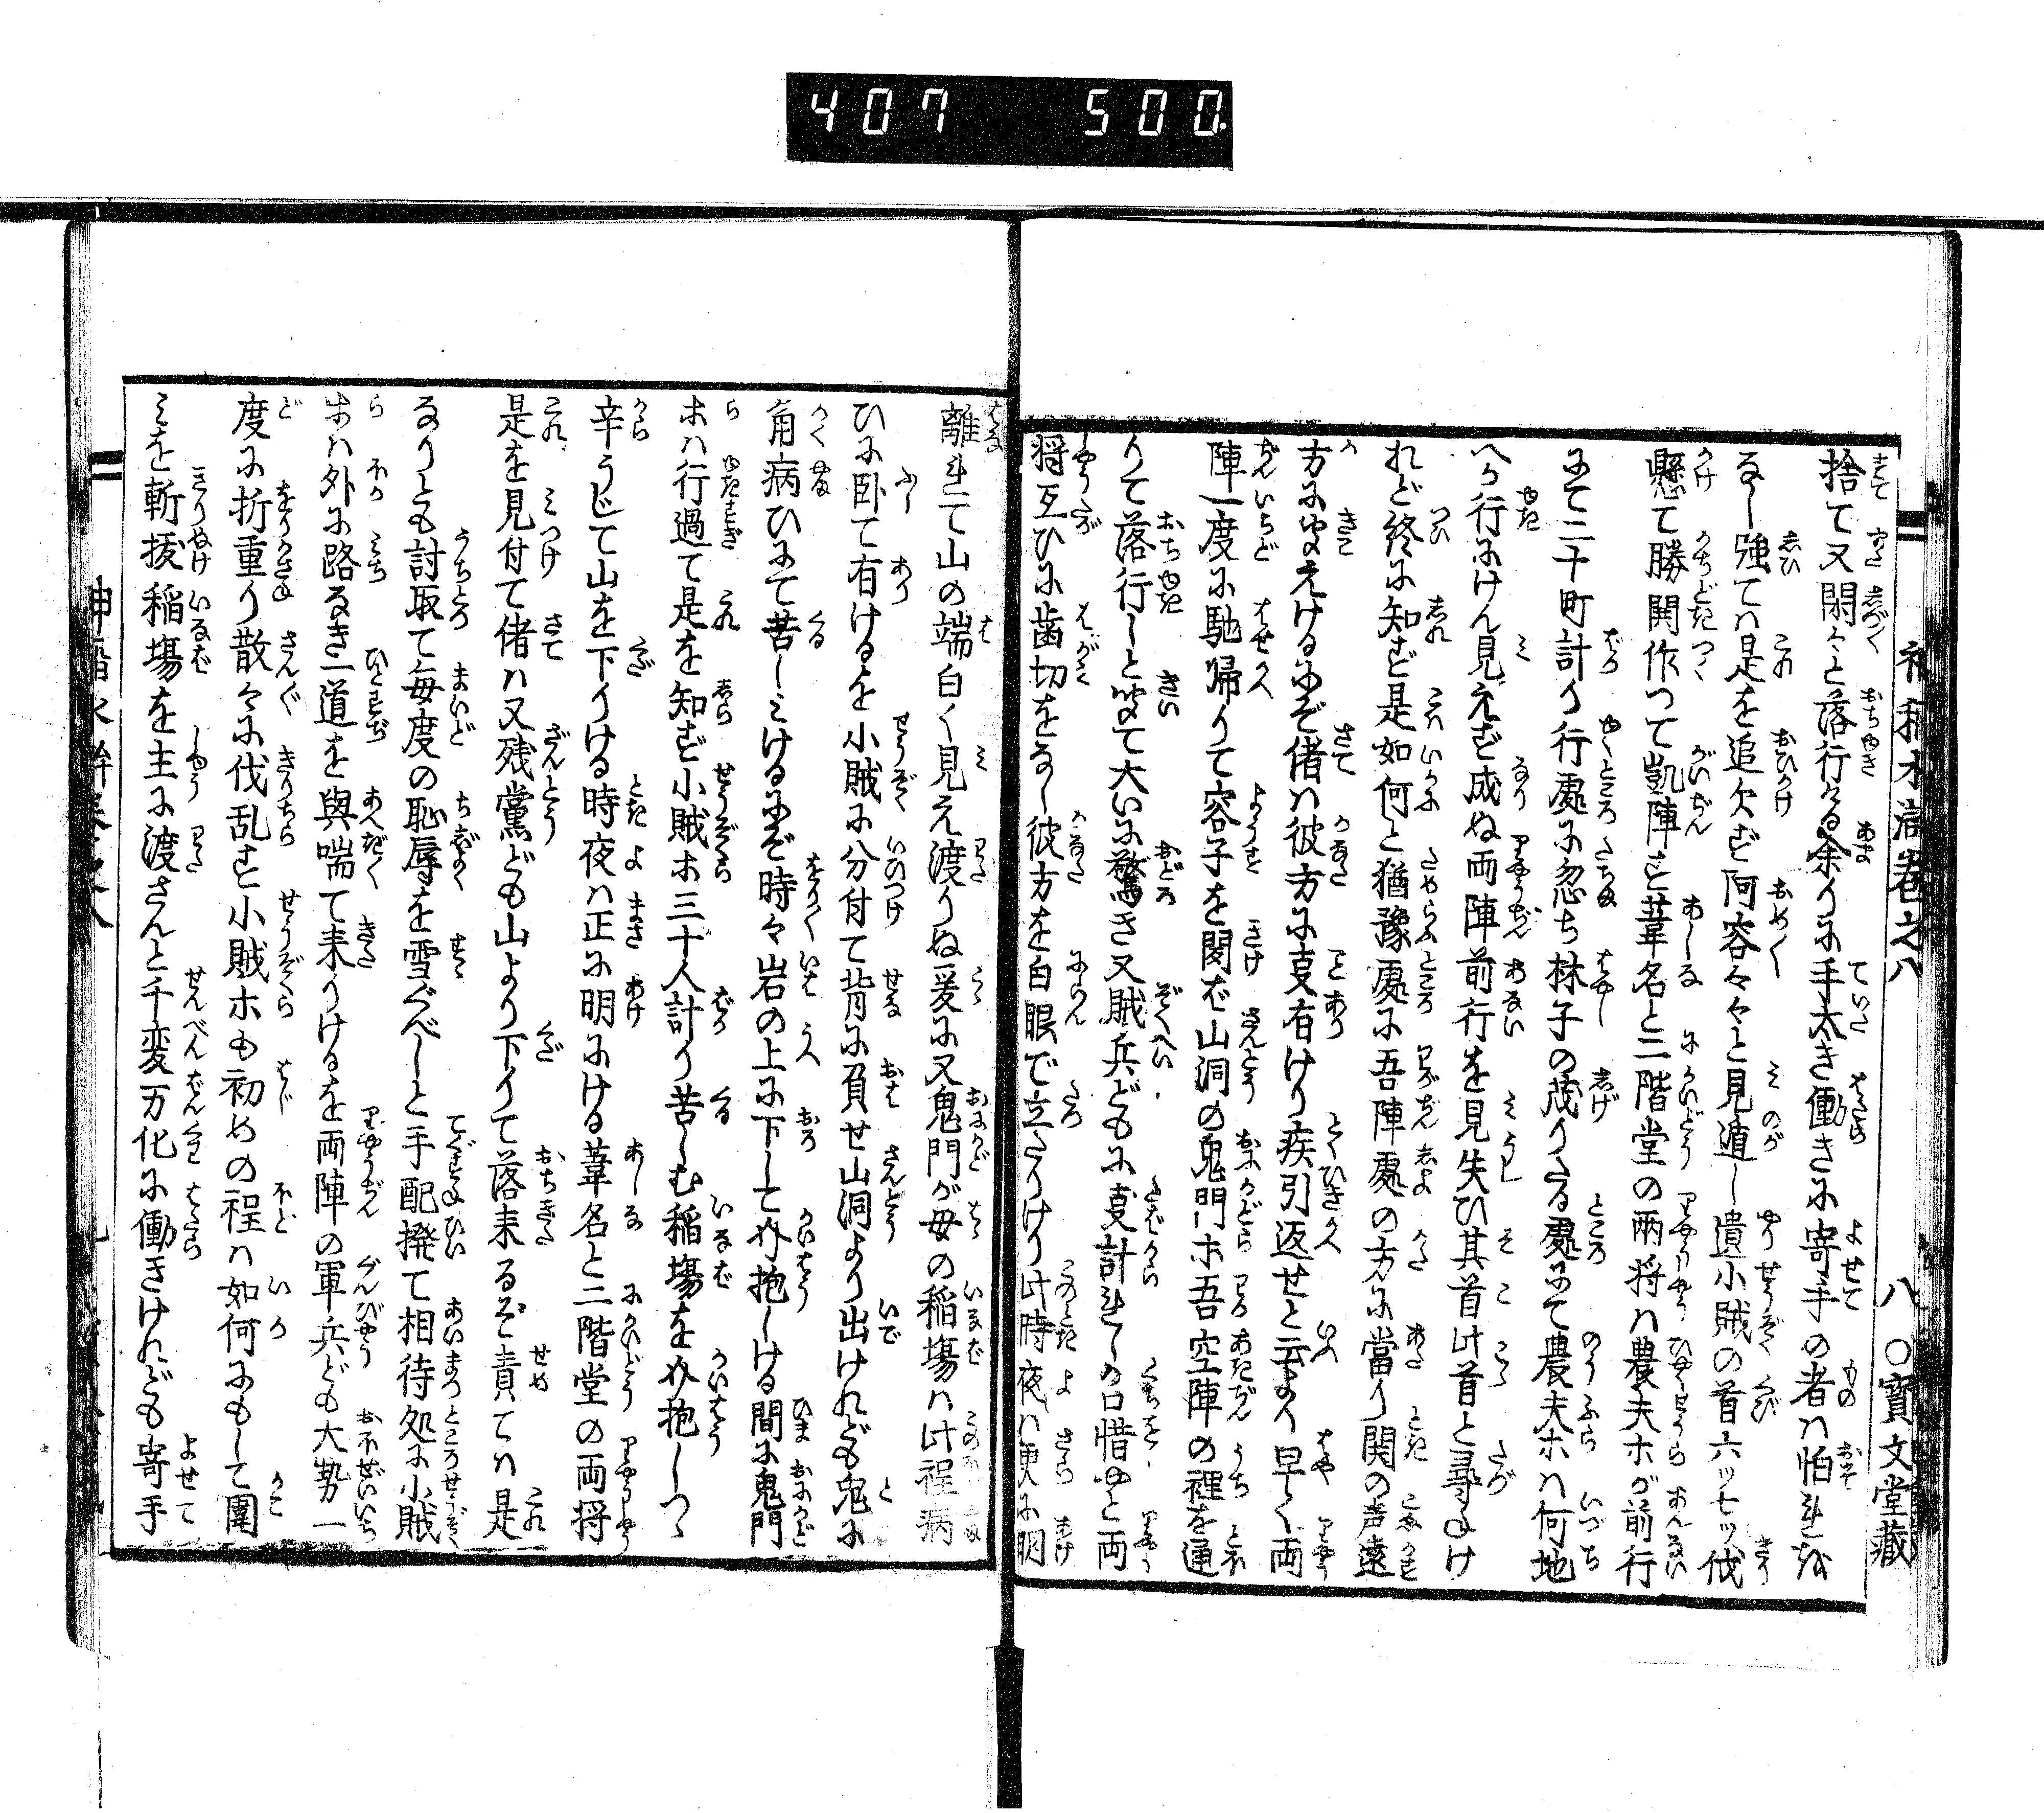 407 500.
神稲水滸巻之八 八 ○寳文堂藏
捨て又閑々と落行ける余りに手太き働きに寄手の者ハ怕れを
なし強てハ是を追欠ず阿容々々と見遁し遺小賊の首六ッ七ッ伐
懸て勝鬨作つて凱陣す葦名と二階堂の両将ハ農夫ホが前行
にて二十町計り行處に忽ち林子の茂りたる處にて農夫ホハ何地
へか行にけん見えず成ぬ両陣前行を見失ひ其首此首と尋ねけ
れど終に知ず是如何と猶豫處に吾陣處の方に當り関の声遠
方に聞えけるにぞ偖ハ彼方に夏有けり疾引返せと云より早く両
陣一度に馳帰りて容子を聞ば山洞の鬼門ホ吾空陣の裡を通
りて落行しと聞て大いに驚き又賊兵どもに夏計れしか口惜やと両
将互ひに歯切をなし彼方を白眼で立たりけり此時夜ハ更に明
離れて山の端白く見え渡りぬ爰に又鬼門が母の稲塲ハ此程病
ひに卧て有けるを小賊に分付て背に負せ山洞より出けれども兎に
角病ひにて苦しミけるにぞ時々岩の上に下して介抱しける間に鬼門
ホハ行過て是を知ず小賊ホ三十人計り苦しむ稲塲を介抱しつゝ
辛うじて山を下りける時夜ハ正に明にける葦名と二階堂の両将
是を見付て偖ハ又残黨ども山より下りて落来るぞ責てハ是
なりとも討取て毎度の恥辱を雪ぐべしと手配撥て相待処に小賊
ホハ外に路なき一道を與喘て来りけるを両陣の軍兵ども大勢一
度に折重り散々に伐乱す小賊ホも初めの程ハ如何にもして圍
ミを斬抜稲塲を主に渡さんと千変万化に働きけれども寄手